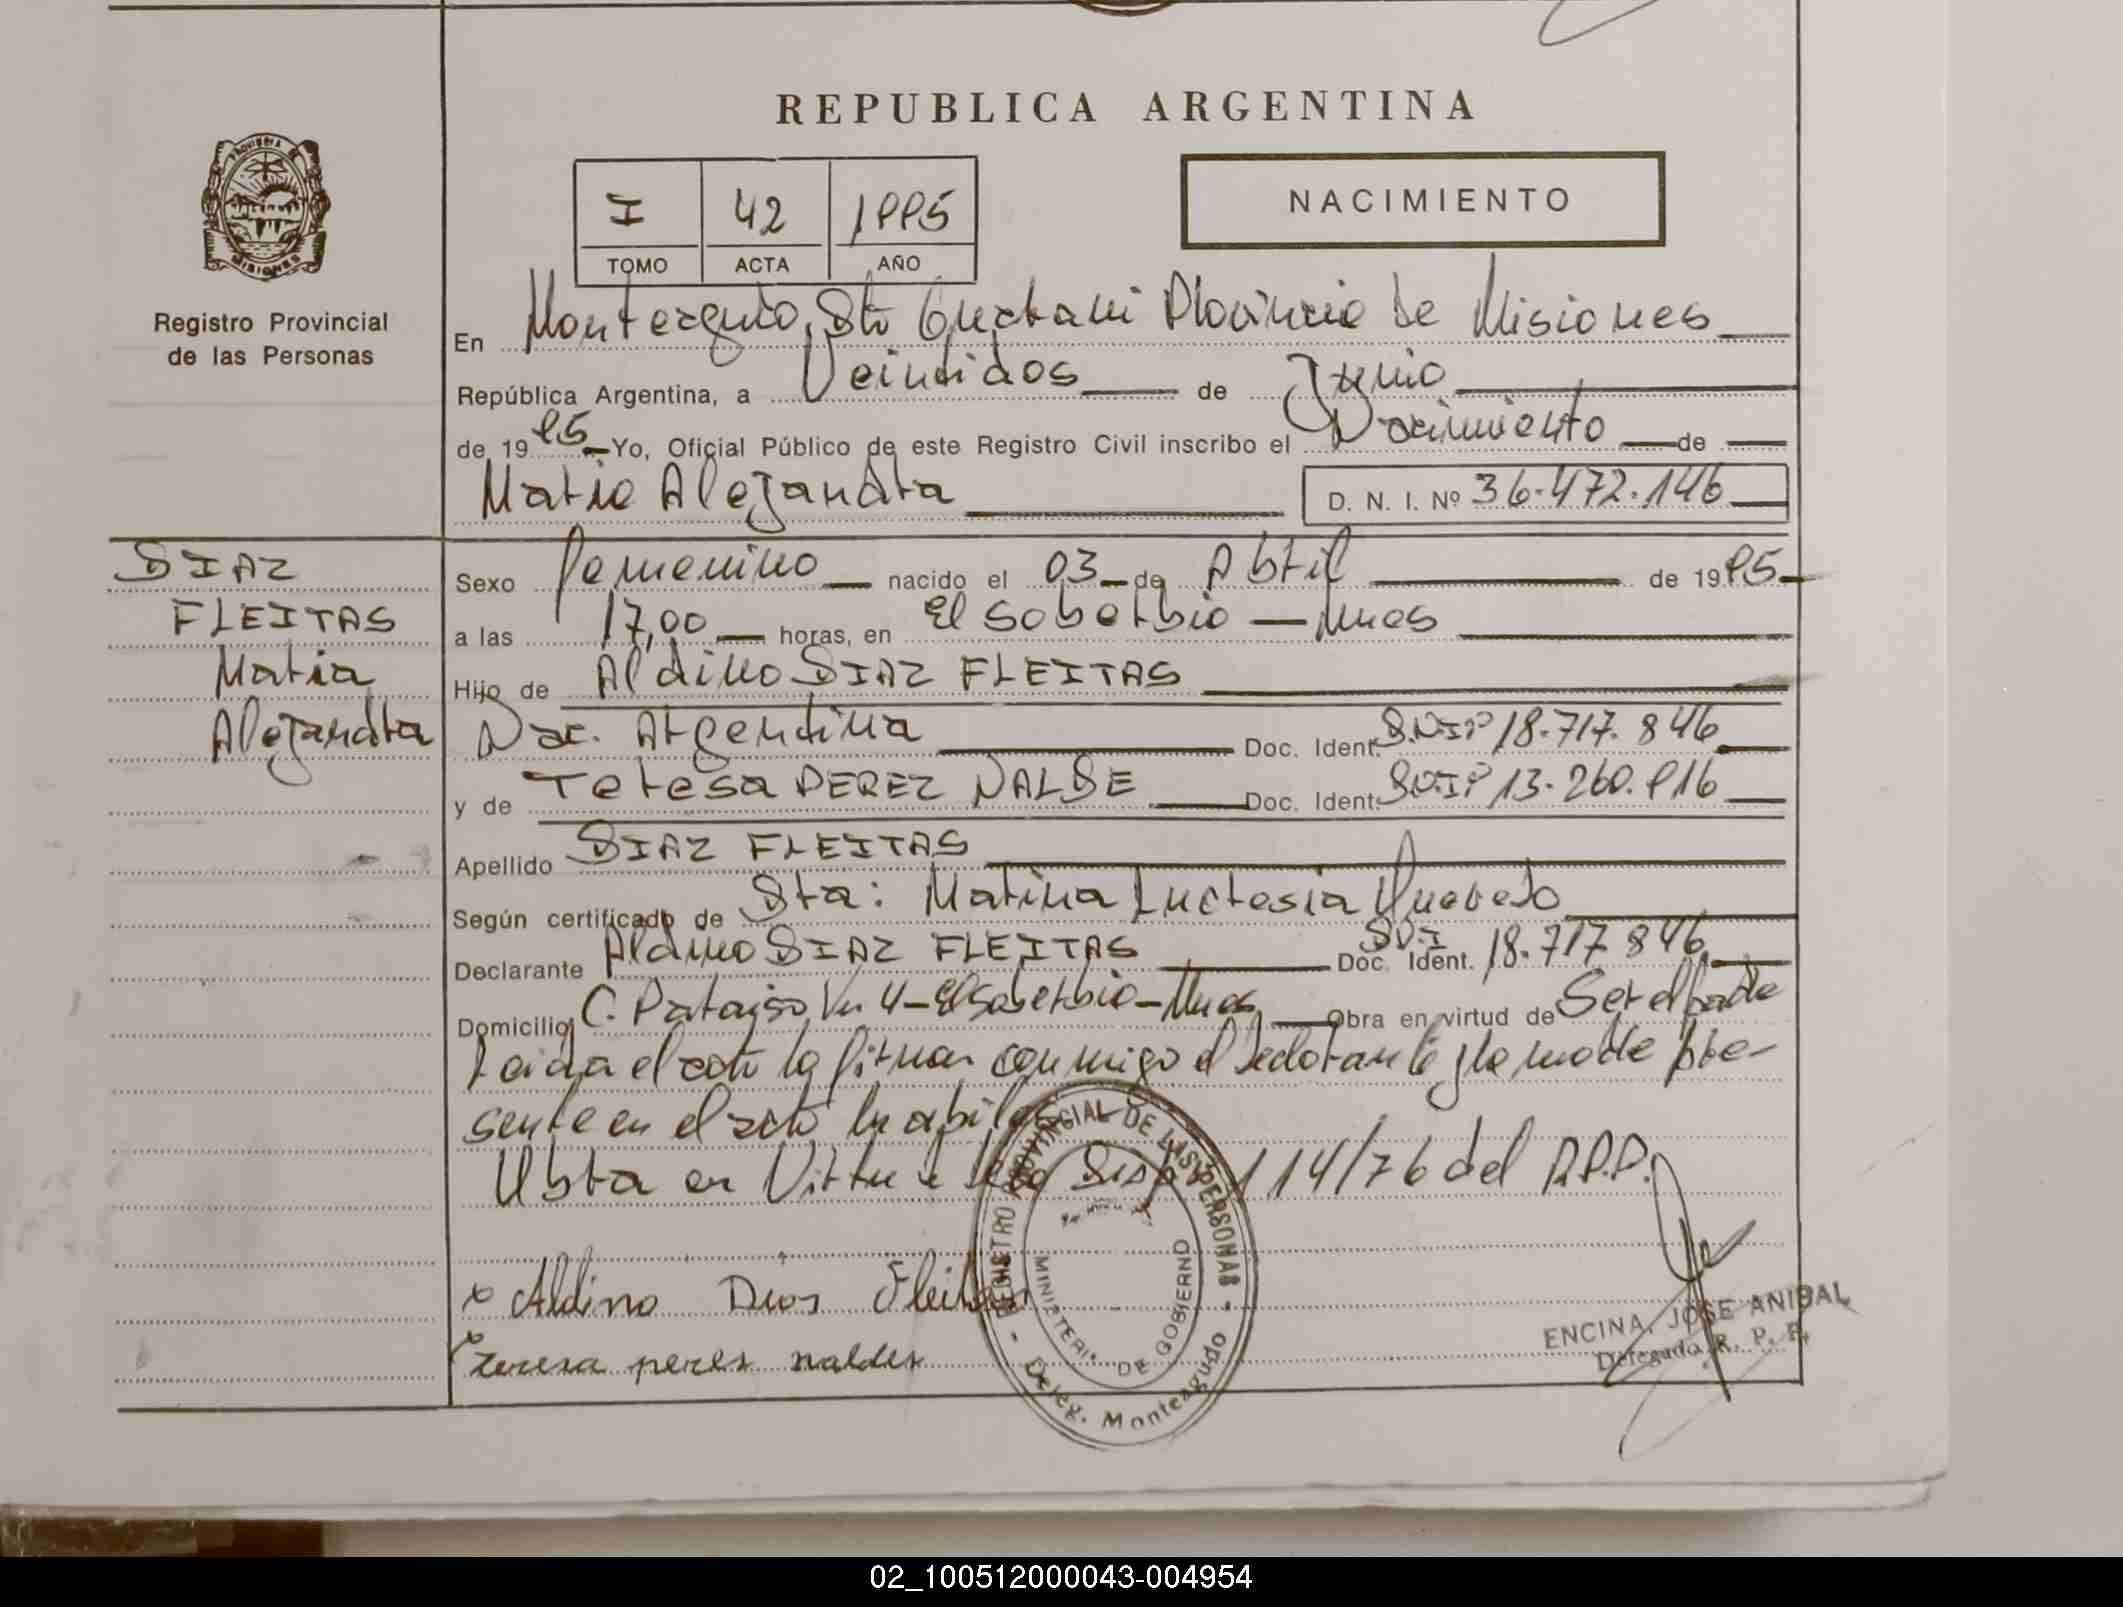 REPUBLICA ARGENTINA
PROVINCIA DE
MISIONES
Registro Provincial
de las Personas
I 42 1995
TOMO ACTA AÑO
NACIMIENTO
En Monteagudo, Dto Guarani Provincia de Misiones
República Argentina, a Veintidos de Junio
de 1995 Yo, Oficial Público de este Registro Civil inscribo el Nacimiento de
Maria Alejandra D. N. I. Nº 36.472.146
DIAZ
FLEITAS
Maria
Alejandra
Sexo Femenino nacido el 03 de Abril de 1995
a las 17,00 horas, en El Soberbio - Mnes
Hijo de Aldino DIAZ FLEITAS
Nac. Argentina Doc. Ident. D.N.Iº 18.717.846
y de Teresa PEREZ NALDE Doc. Ident. D.N.Iº 13.260.916
Apellido DIAZ FLEITAS
Según certificado de Sta: Marina Lucresia
Declarante Aldino DIAZ FLEITAS Doc. Ident. D.N.I 18.717.846
Domicilio C. Paraiso, Km 4 - El Soberbio - Mnes Obra en virtud de Ser el Padre
Leida el acta la firman conmigo el declarante y la madre pre-
sente en el acto
Obra en Virtu de la Disp. 114/76 del R.P.P.
x Aldino Dias Fleitas
teresa peres naldes
REGISTRO PROVINCIAL DE LAS PERSONAS
MINISTERIO DE GOBIERNO
Deleg. Monteagudo
ENCINA, JOSE ANIBAL
Delegado R. P. P.
02_100512000043-004954